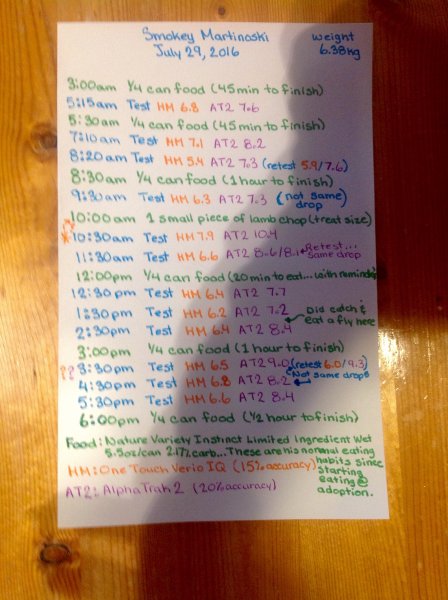 Smokey Martinoski
July 29, 2016
weight
6.38kg
3:00am 1/4 can food (45min to finish)
5:15am Test HM 6.8 AT2 7.6
5:30am 1/4 can food (45min to finish)
7:10am Test HM 7.1 AT2 8.2
8:20am Test HM 5.4 AT2 7.3 (retest 5.9/7.6)
8:30am 1/4 can food (1 hour to finish)
9:30am Test HM 6.3 AT2 7.3 (not same drop)
10:00am 1 small piece of lamb chop (treat size)
10:30am Test HM 7.9 AT2 10.4
11:30am Test HM 6.6 AT2 8.6/8.1 Retest... same drop
12:00pm 1/4 can food (20min to eat... with reminders
12:30pm Test HM 6.4 AT2 7.7
1:30pm Test HM 6.2 AT2 7.2
Did catch & eat a fly here
2:30pm Test HM 6.4 AT2 8.4
3:00pm 1/4 can food (1 hour to finish)
?? 3:30pm Test HM 6.5 AT2 9.0 (retest 6.0/9.3)
(Not same drop)
4:30pm Test HM 6.8 AT2 8.2
5:30pm Test HM 6.6 AT2 8.4
6:00pm 1/4 can food (1/2 hour to finish)
Food: Nature Variety Instinct Limited Ingredient Wet
5.5oz/can 2.17% carb... These are his normal eating
habits since starting eating @ adoption.
HM: One Touch Verio IQ (15% accuracy)
AT2: AlphaTrak 2 (20% accuracy)